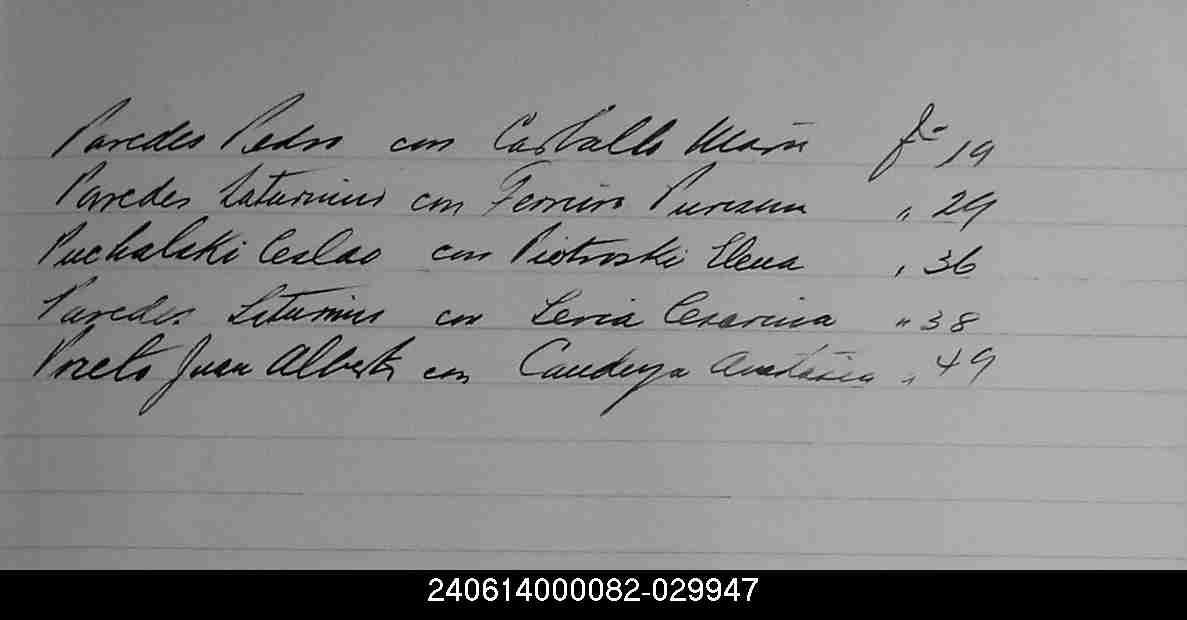 Paredes Pedro con Carballo María fº 19
Paredes Saturnino con Ferreiro Purisima " 29
Puchalski Ceslao con Piotroski Elena " 36
Paredes Saturnino con Leria Cesarina " 38
Prieto Juan Alberto con Candeya " 49
240614000082-029947